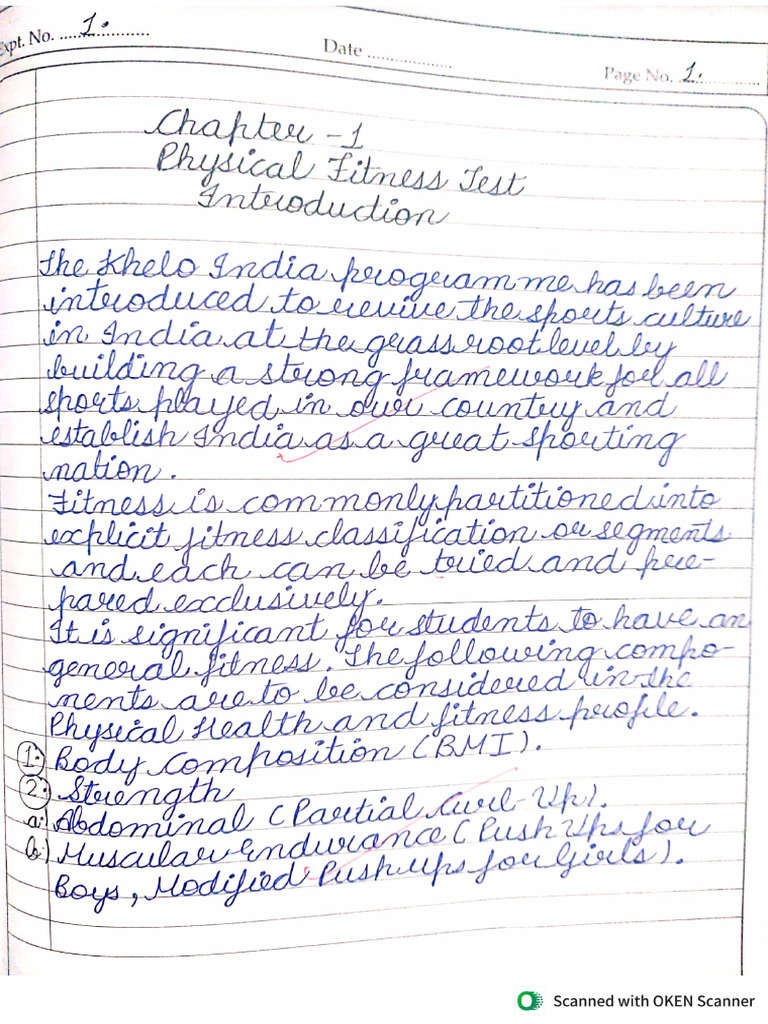 Expt. No. 1.
Date
Page No. 1.
Chapter - 1
Physical Fitness Test
Introduction
The Khelo India programme has been
introduced to revive the sports culture
in India at the grass root level by
building a strong framework for all
sports played in our country and
establish India as a great sporting
nation.
Fitness is commonly partitioned into
explicit fitness classification or segments
and each can be tried and pre-
pared exclusively.
It is significant for students to have an
general fitness. The following compo-
nents are to be considered in the
Physical Health and fitness profile.
1. Body Composition (BMI).
2. Strength
a.) Abdominal (Partial Curl-Up).
b.) Muscular Endurance (Push Ups for
Boys, Modified Push ups for Girls).
Scanned with OKEN Scanner